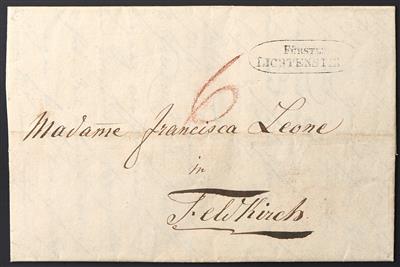 FÜRSTL:
LICHTENSTEIN
6
Madame Francisca Leone
in
Feldkirch